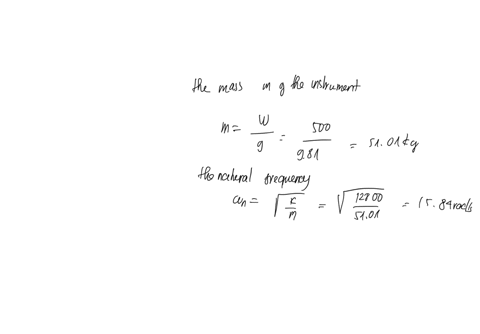 the mass m g the instrument
m = W/g = 500/9.81 = 51.01 kg
the natural frequency
ωn = √(k/m) = √(12800/51.01) = 15.84 rad/s